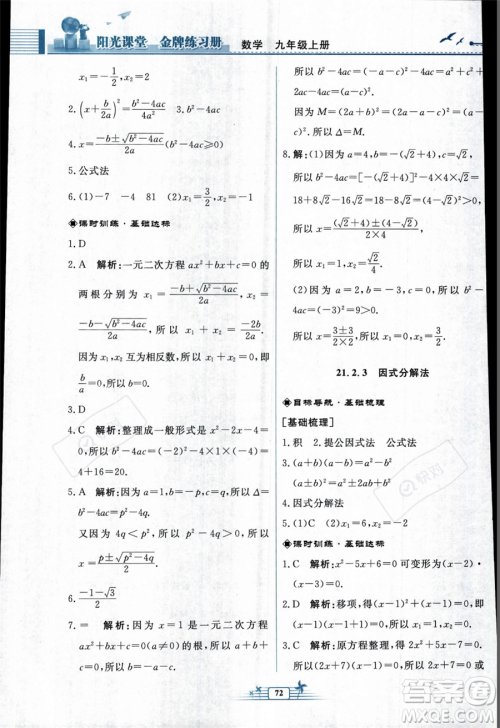 阳光课堂 金牌练习册 数学 九年级上册
x₁=-1/2
2.(x+b/2a)²=(b²-4ac)/4a²
4.x=(-b±√(b²-4ac))/2a
5.公式法
6.(1)-7 -4 81 (2)x₁=3/2,x₂=1
课时训练·基础达标
1.D
2.A 解析:一元二次方程ax²+bx+c=0的
两根分别为x₁=(-b+√(b²-4ac))/2a,x₂=
(-b-√(b²-4ac))/2a,所以x₁+x₂=-2b/2a=0.因为
b/a=0,所以b=0.
3.D
4.C 解析:整理成一般形式是x²-2x-
4=0,所以a=1,b=-2,c=-4,所以b²-4ac=
4+16=20.
5.A 解析:因为b²-4ac=p²-4q.
又因为4q<p²,所以p²-4q>0,所以x=
(p±√(p²-4q))/2.
6.(-1-√3)/2
7.= 解析:因为x=1是一元二次方程
ax²+bx+c=0的根,所以a+b+c=0,b=-a-c,
所以b²-4ac=(-a-c)²-4ac=a²-2ac+c².
因为M=(2a+b)²=(2a-a-c)²=a²-2ac+
c²,所以b²-4ac=M.
8.解:(1)因为a=2,b=-(√2+4),c=√2,
所以b²-4ac=[-(√2+4)]²-4×2×√2=
18+8√2-8√2=18>0.
所以x=((√2+4)±3√2)/(2×2).
所以x₁=√2+1,x₂=1-√2/2.
(2)因为a=2,b=-3,c=0,
所以b²-4ac=9>0.
所以x=(3±3)/(2×2),所以x₁=3/2,x₂=0.
21.2.3 因式分解法
目标导航·基础梳理
[基础梳理]
1.积 2.提公因式法 公式法
3.(a+b)(a-b)=a²-b²
(a±b)²=a²±2ab+b²
4.因式分解法
5.(1)C (2)x₁=1,x₂=3
课时训练·基础达标
1.C 解析:x²-5x+6=0可变形为
(x-2)(x-3)=0.
2.D 解析:移项,得(x-1)²-(x-1)=0,
所以(x-1)(x-2)=0,所以x₁=1,x₂=2.
3.C 解析:原方程整理,得x²+4x=0,
所以x(x+4)=0,所以x₁=0,x₂=-4.
72